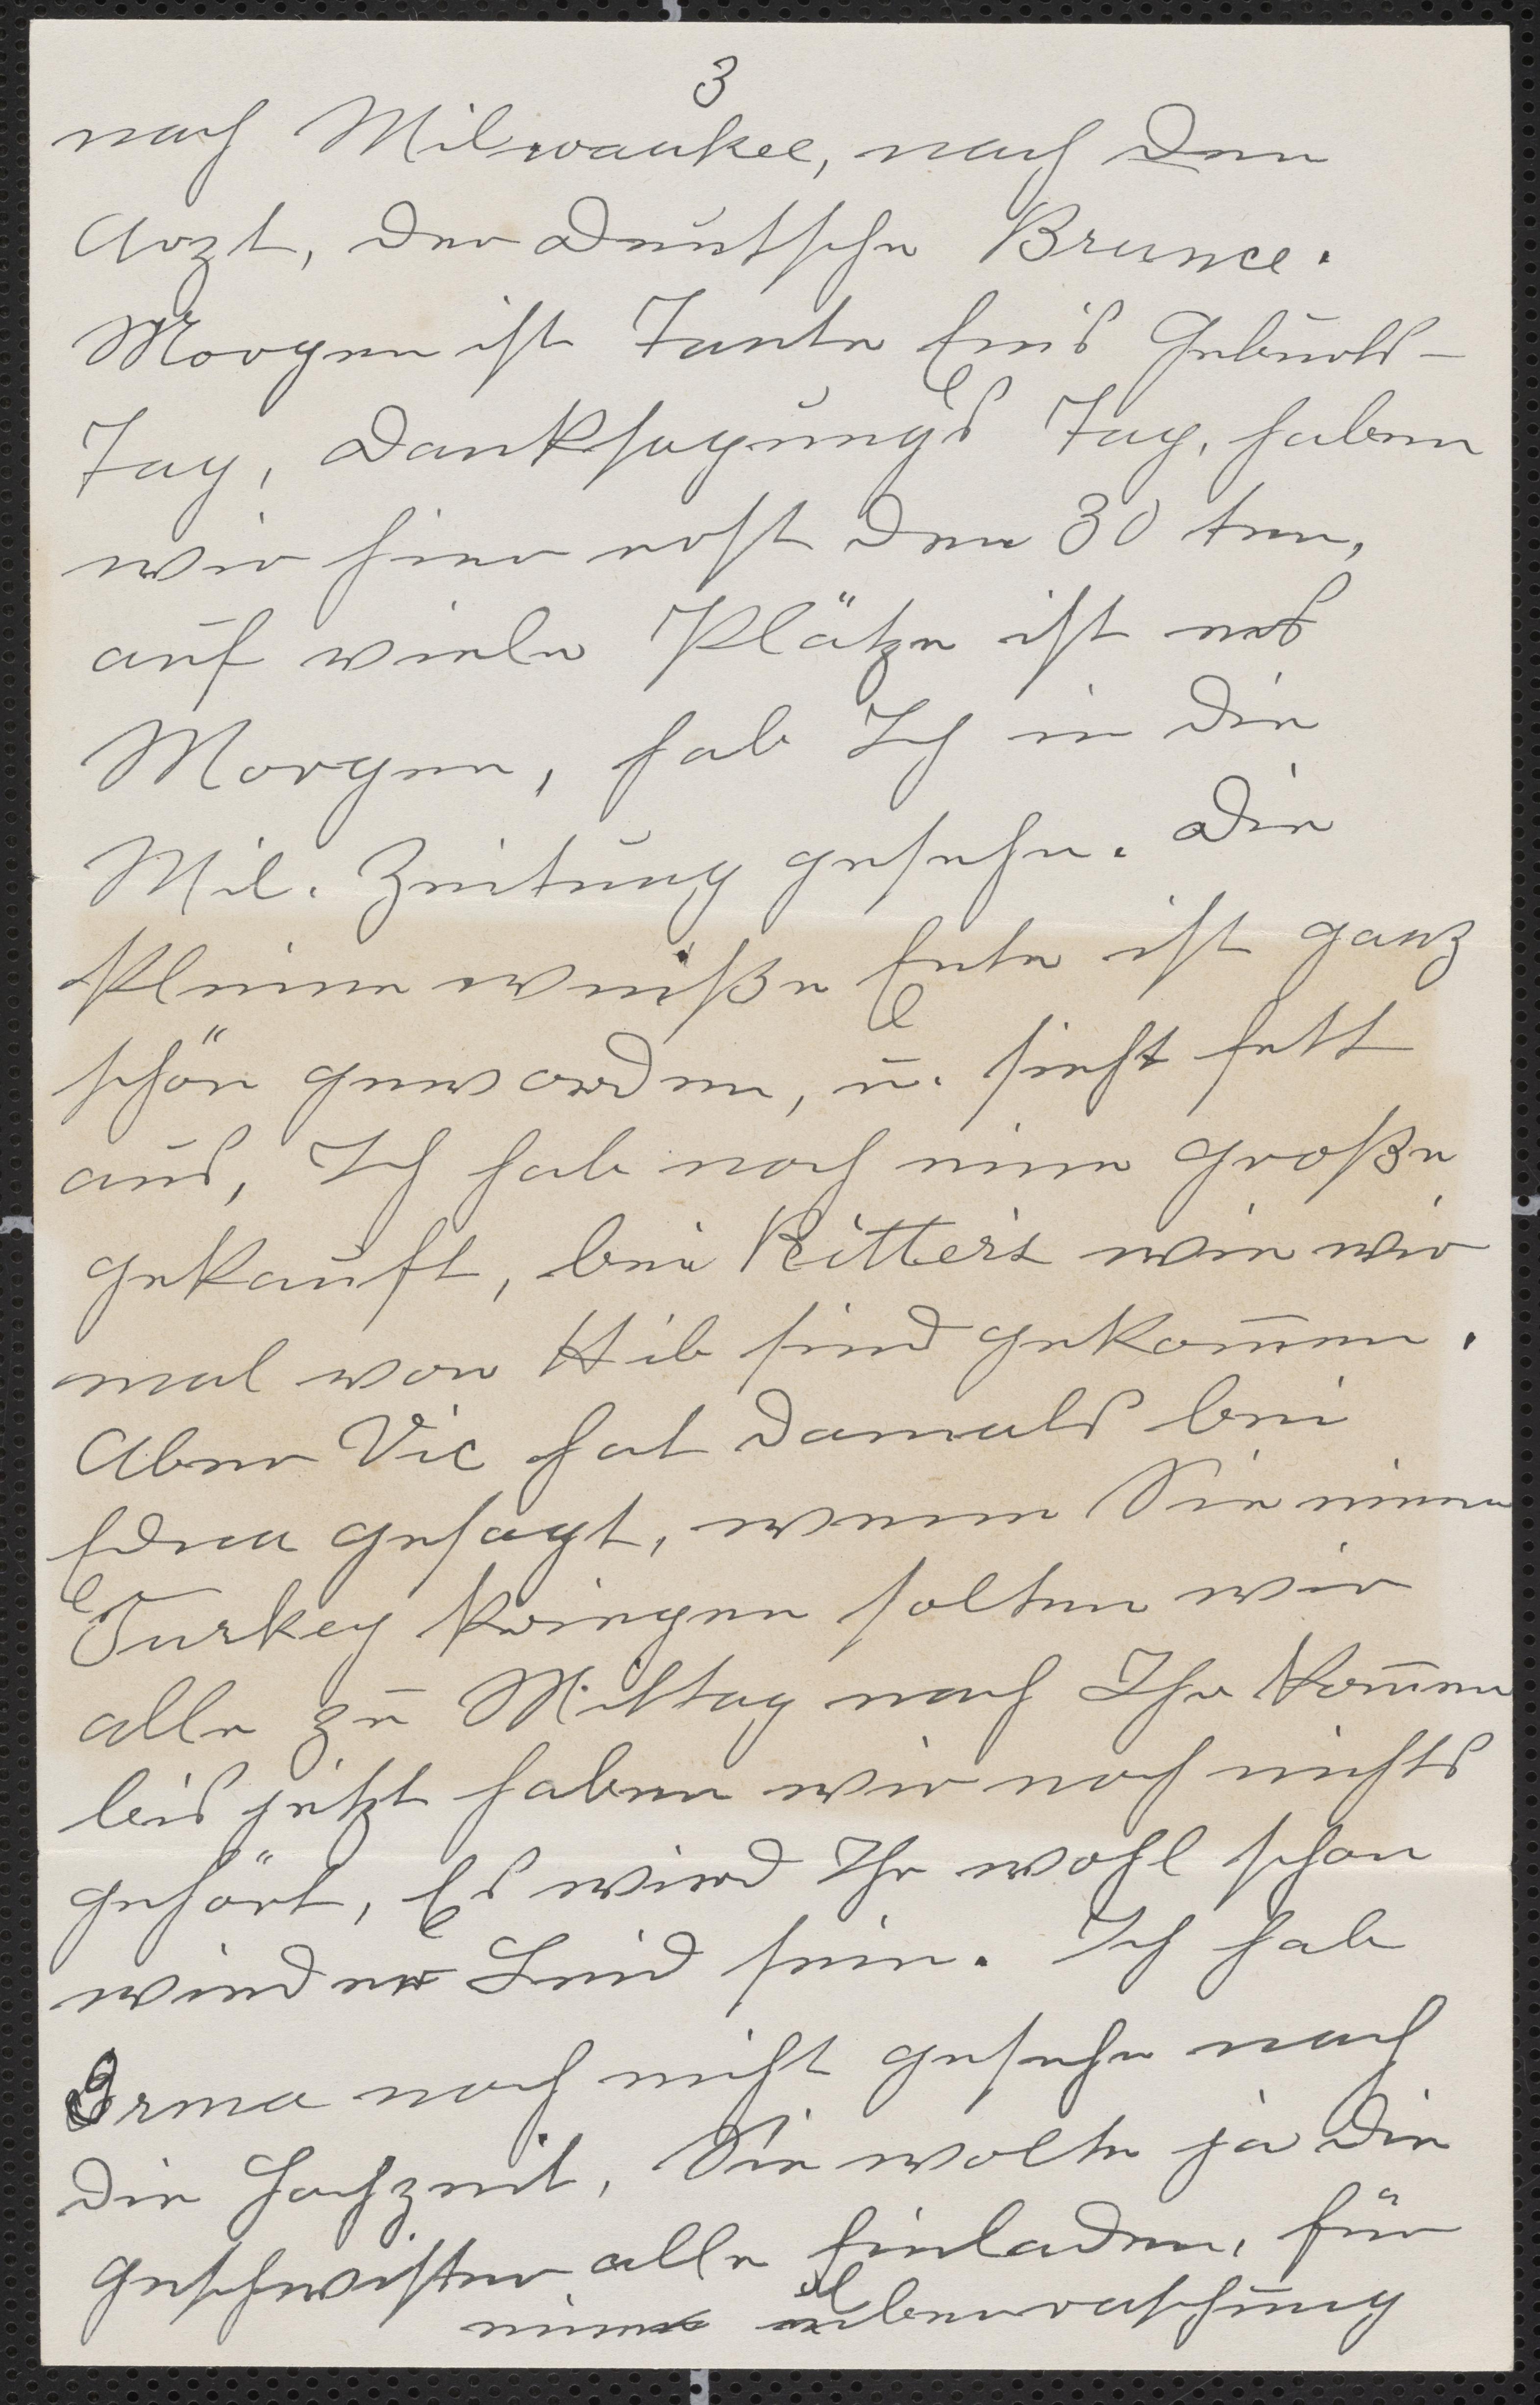 3
nach Milwaukee, nach den
Arzt, der Deutsche Brunce.
Morgen ist Tante Eni's Geburts-
Tag, Danksagung's Tag, haben
wir hier erst den 30 ten,
auf viele Plätze ist es
Morgen, hab Ich in die
Mil. Zeitung gesehn. Die
kleine weiße Ente ist ganz
schön geworden, u. sieht fett
aus, Ich hab noch eine große
gekauft, bei Ritter's wie wir
mal von Hib sind gekom̅en.
Aber Vic hat damals bei
Edna gesagt, wenn Sie einen
Turkey kriegen solten wir
alle zu Mittag nach Ihr kom̅en
bis jetzt haben wir noch nichts
gehört, Es wird Ihr wohl schon
wieder Leid sein. Ich hab
Irma noch nicht gesehn nach
die Hochzeit, Sie wolte ja die
Geschwister alle Einladen, für
eine überraschung